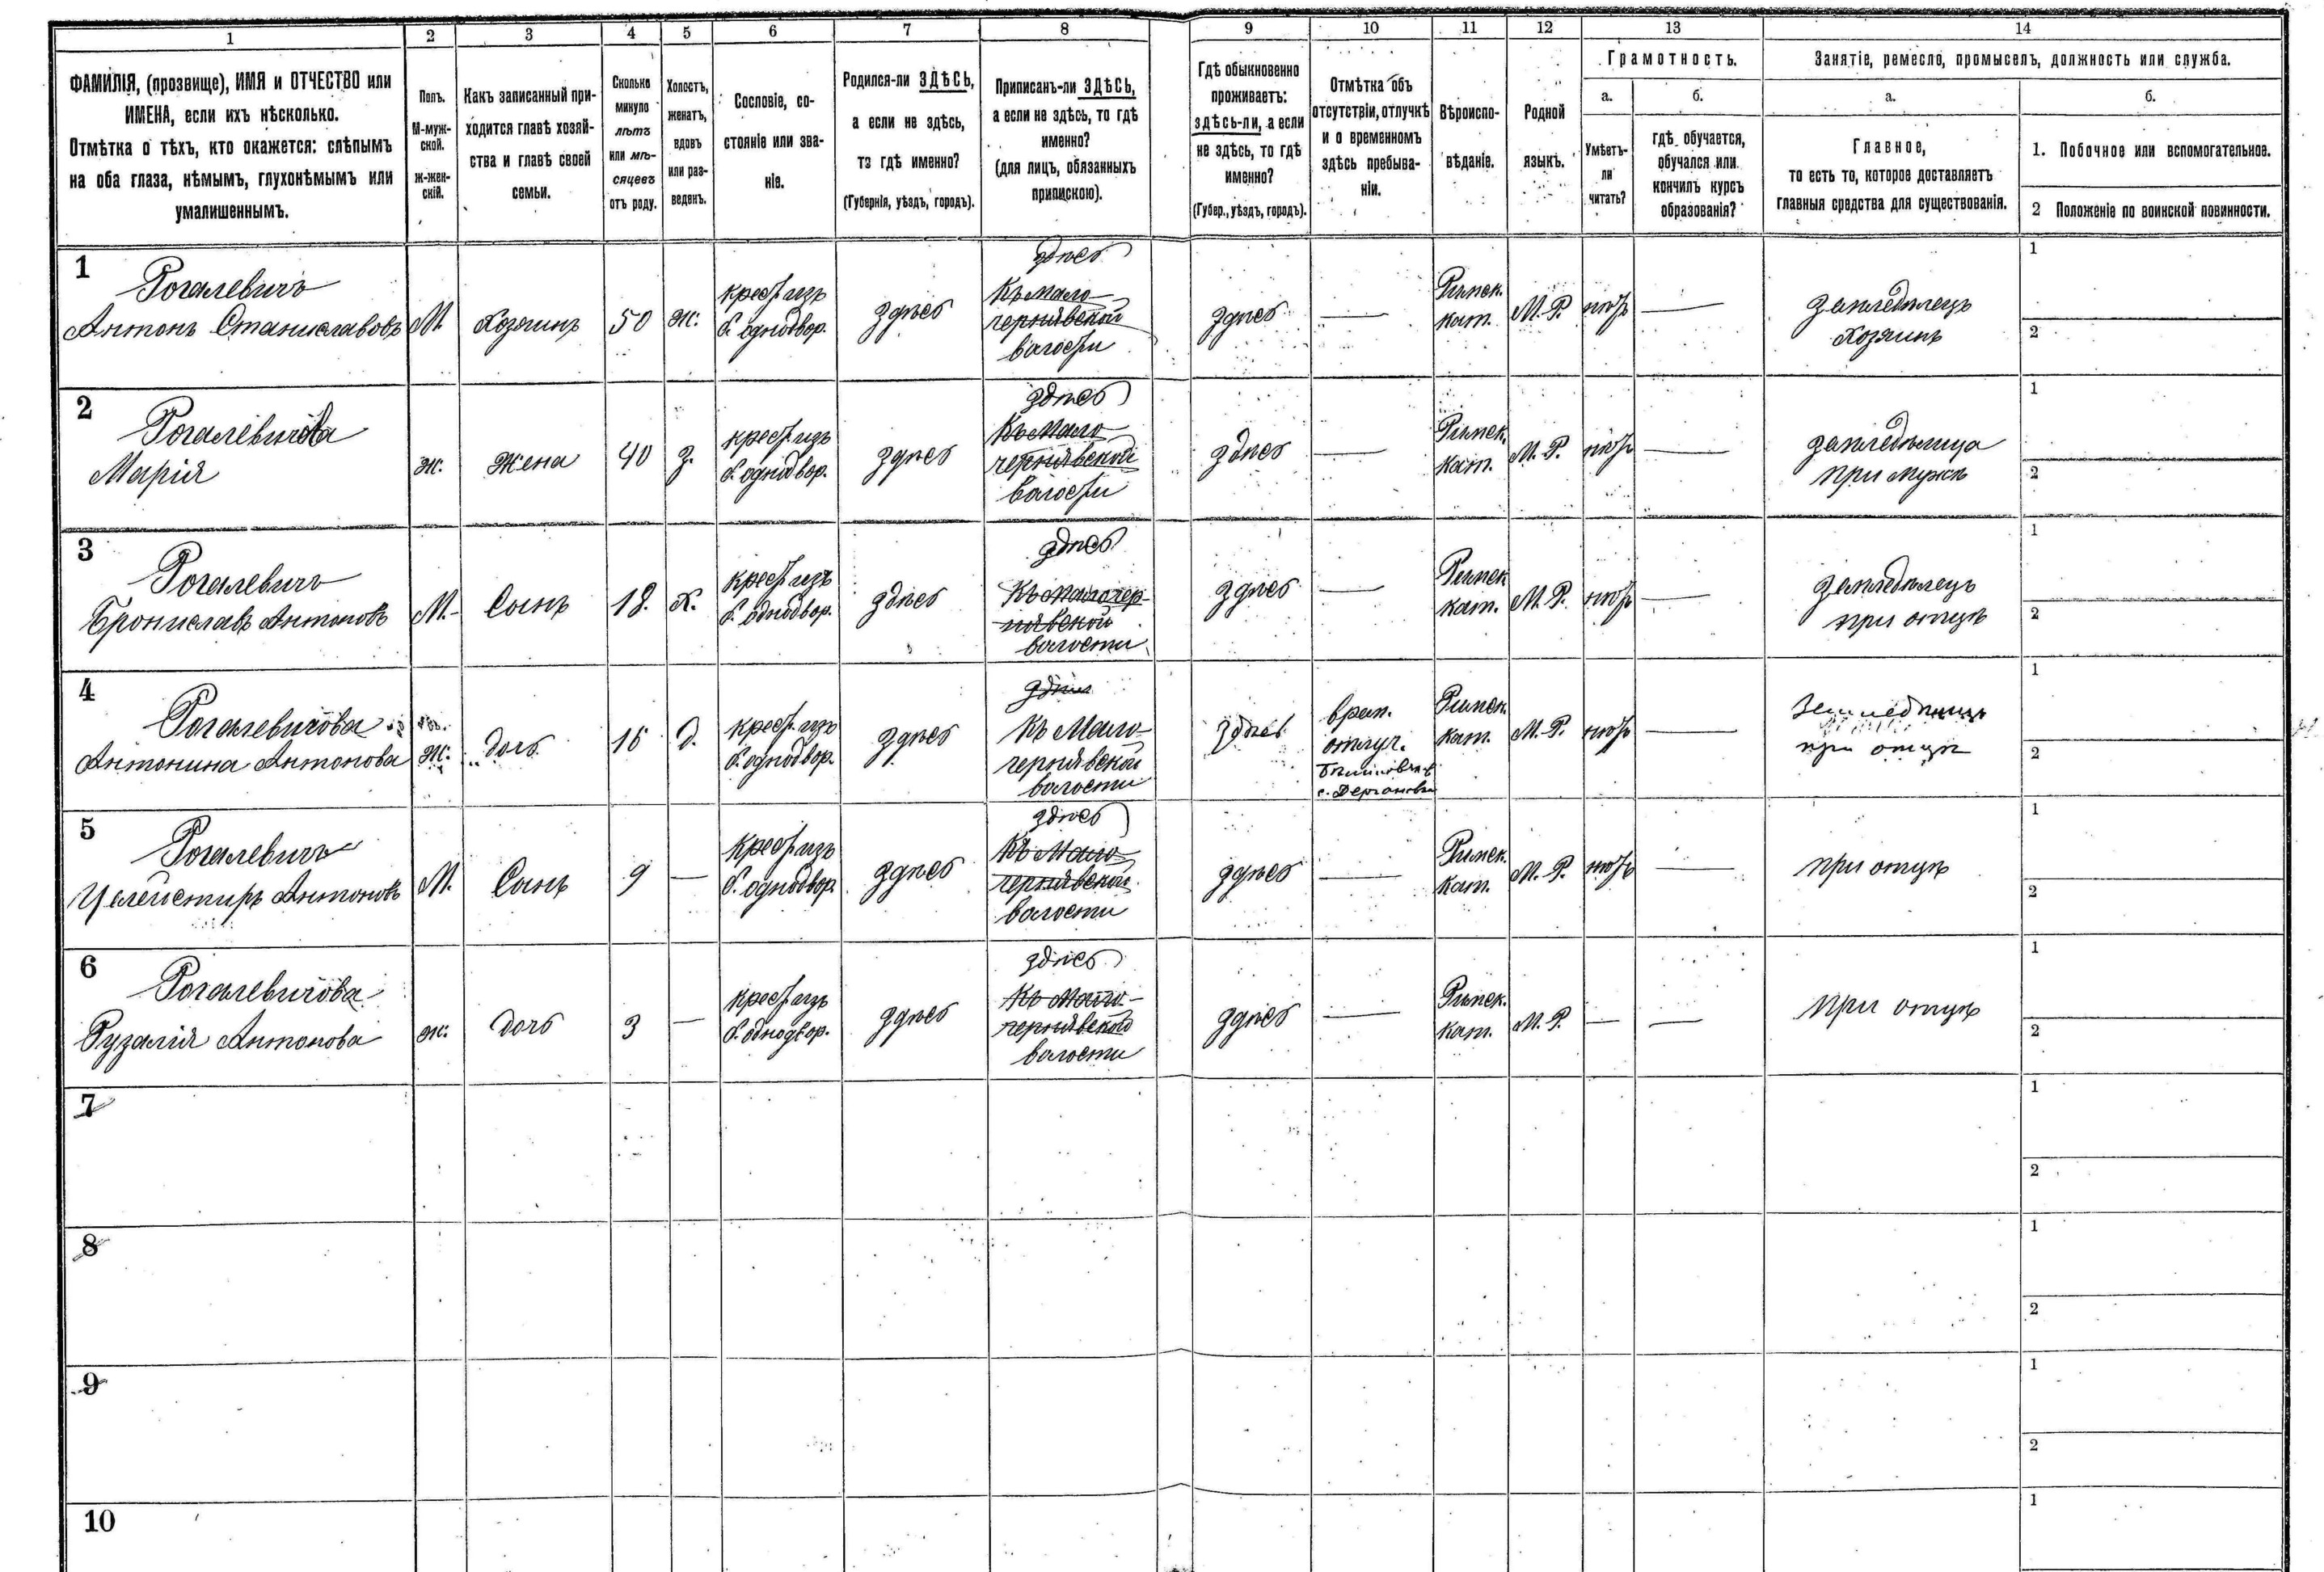 1 2 3 4 5 6 7 8 9 10 11 12 13 14
ФАМИЛІЯ, (прозвище), ИМЯ и ОТЧЕСТВО или
ИМЕНА, если ихъ нѣсколько.
Отмѣтка о тѣхъ, кто окажется: слѣпымъ
на оба глаза, нѣмымъ, глухонѣмымъ или
умалишеннымъ.
Полъ.
М-муж-
ской.
ж-жен-
скій.
Какъ записанный при-
ходится главѣ хозяй-
ства и главѣ своей
семьи.
Сколько
минуло
лѣтъ
или мѣ-
сяцевъ
отъ роду.
Холостъ,
женатъ,
вдовъ
или раз-
веденъ.
Сословіе, со-
стояніе или зва-
ніе.
Родился-ли ЗДѢСЬ,
а если не здѣсь,
то гдѣ именно?
(Губернія, уѣздъ, городъ).
Приписанъ-ли ЗДѢСЬ,
а если не здѣсь, то гдѣ
именно?
(для лицъ, обязанныхъ
припискою).
Гдѣ обыкновенно
проживаетъ:
здѣсь-ли, а если
не здѣсь, то гдѣ
именно?
(Губер., уѣздъ, городъ).
Отмѣтка объ
отсутствіи, отлучкѣ
и о временномъ
здѣсь пребыва-
ніи.
Вѣроиспо-
вѣданіе.
Родной
языкъ.
Грамотность.
а.
Умѣетъ-
ли
читать?
б.
гдѣ обучается,
обучался или
кончилъ курсъ
образованія?
Занятіе, ремесло, промыселъ, должность или служба.
а.
Главное,
то есть то, которое доставляетъ
главныя средства для существованія.
б.
1. Побочное или вспомогательное.
2 Положеніе по воинской повинности.
1
Рогалевичъ
Антонъ Станиславовъ
М.
Хозяинъ
50
ж.
крест. изъ
б. однодвор.
здѣсь
здѣсь
Къ Мало-
чернявской
волости
здѣсь
—
Римск.
кат.
М. Р.
нѣтъ
—
земледѣлецъ
Хозяинъ
1
2
2
Рогалевичова
Марія
ж.
Жена
40
з.
крест. изъ
б. однодвор.
здѣсь
здѣсь
Къ Мало-
чернявской
волости
здѣсь
—
Римск.
кат.
М. Р.
нѣтъ
—
земледѣлица
при мужѣ
1
2
3
Рогалевичъ
Брониславъ Антоновъ
М.
Сынъ
18.
Х.
крест. изъ
б. однодвор.
здѣсь
здѣсь
Къ Малочер-
нявской
волости
здѣсь
—
Римск.
кат.
М. Р.
нѣтъ
—
земледѣлецъ
при отцѣ
1
2
4
Рогалевичова
Антонина Антонова
ж.
дочь
16
д.
крест. изъ
б. однодвор.
здѣсь
здѣсь
Къ Мало-
чернявской
волости
здѣсь
врем.
отлуч.
Римск.
кат.
М. Р.
нѣтъ
—
при отцѣ
1
2
5
Рогалевичъ
Антоновъ
М.
Сынъ
9
—
крест. изъ
б. однодвор.
здѣсь
здѣсь
Къ Мало-
чернявской
волости
здѣсь
—
Римск.
кат.
М. Р.
нѣтъ
—
при отцѣ
1
2
6
Рогалевичова
Рузалія Антонова
ж.
дочь
3
—
крест. изъ
б. однодвор.
здѣсь
здѣсь
Къ Мало-
чернявской
волости
здѣсь
—
Римск.
кат.
М. Р.
—
—
при отцѣ
1
2
7
1
2
8
1
2
9
1
2
10
1